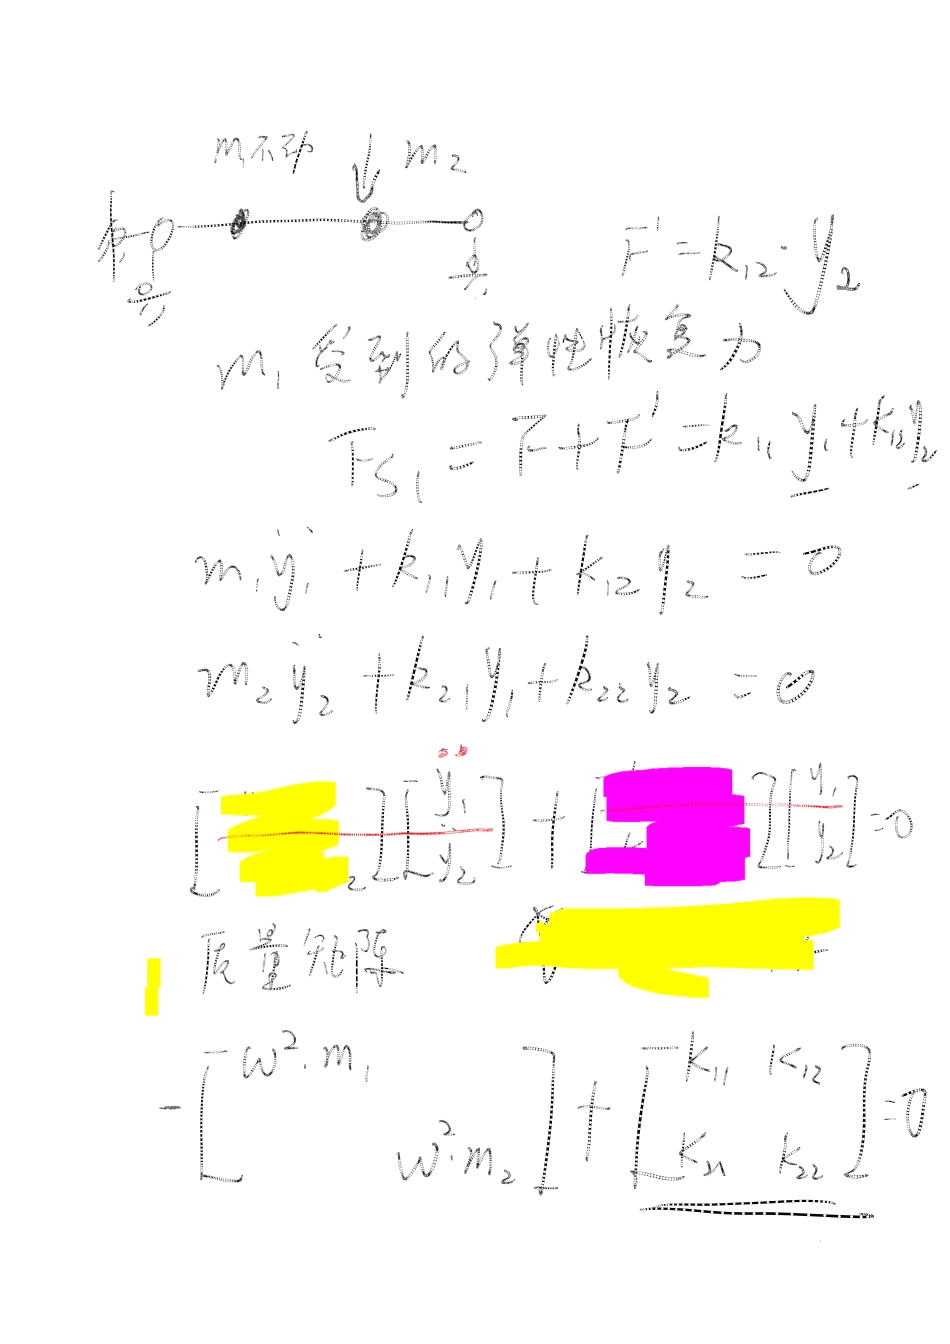 m₁不动 m₂
F' = k₁₂·y₂
m₁受到的弹性恢复力
F_S₁ = F + F' = k₁₁y₁ + k₁₂y₂
m₁ÿ₁ + k₁₁y₁ + k₁₂y₂ = 0
m₂ÿ₂ + k₂₁y₁ + k₂₂y₂ = 0
[ ₂][ÿ₁ ÿ₂] + [ ][y₁ y₂] = 0
质量矩阵
-[ω²·m₁ ω²·m₂] + [k₁₁ k₁₂ k₂₁ k₂₂] = 0